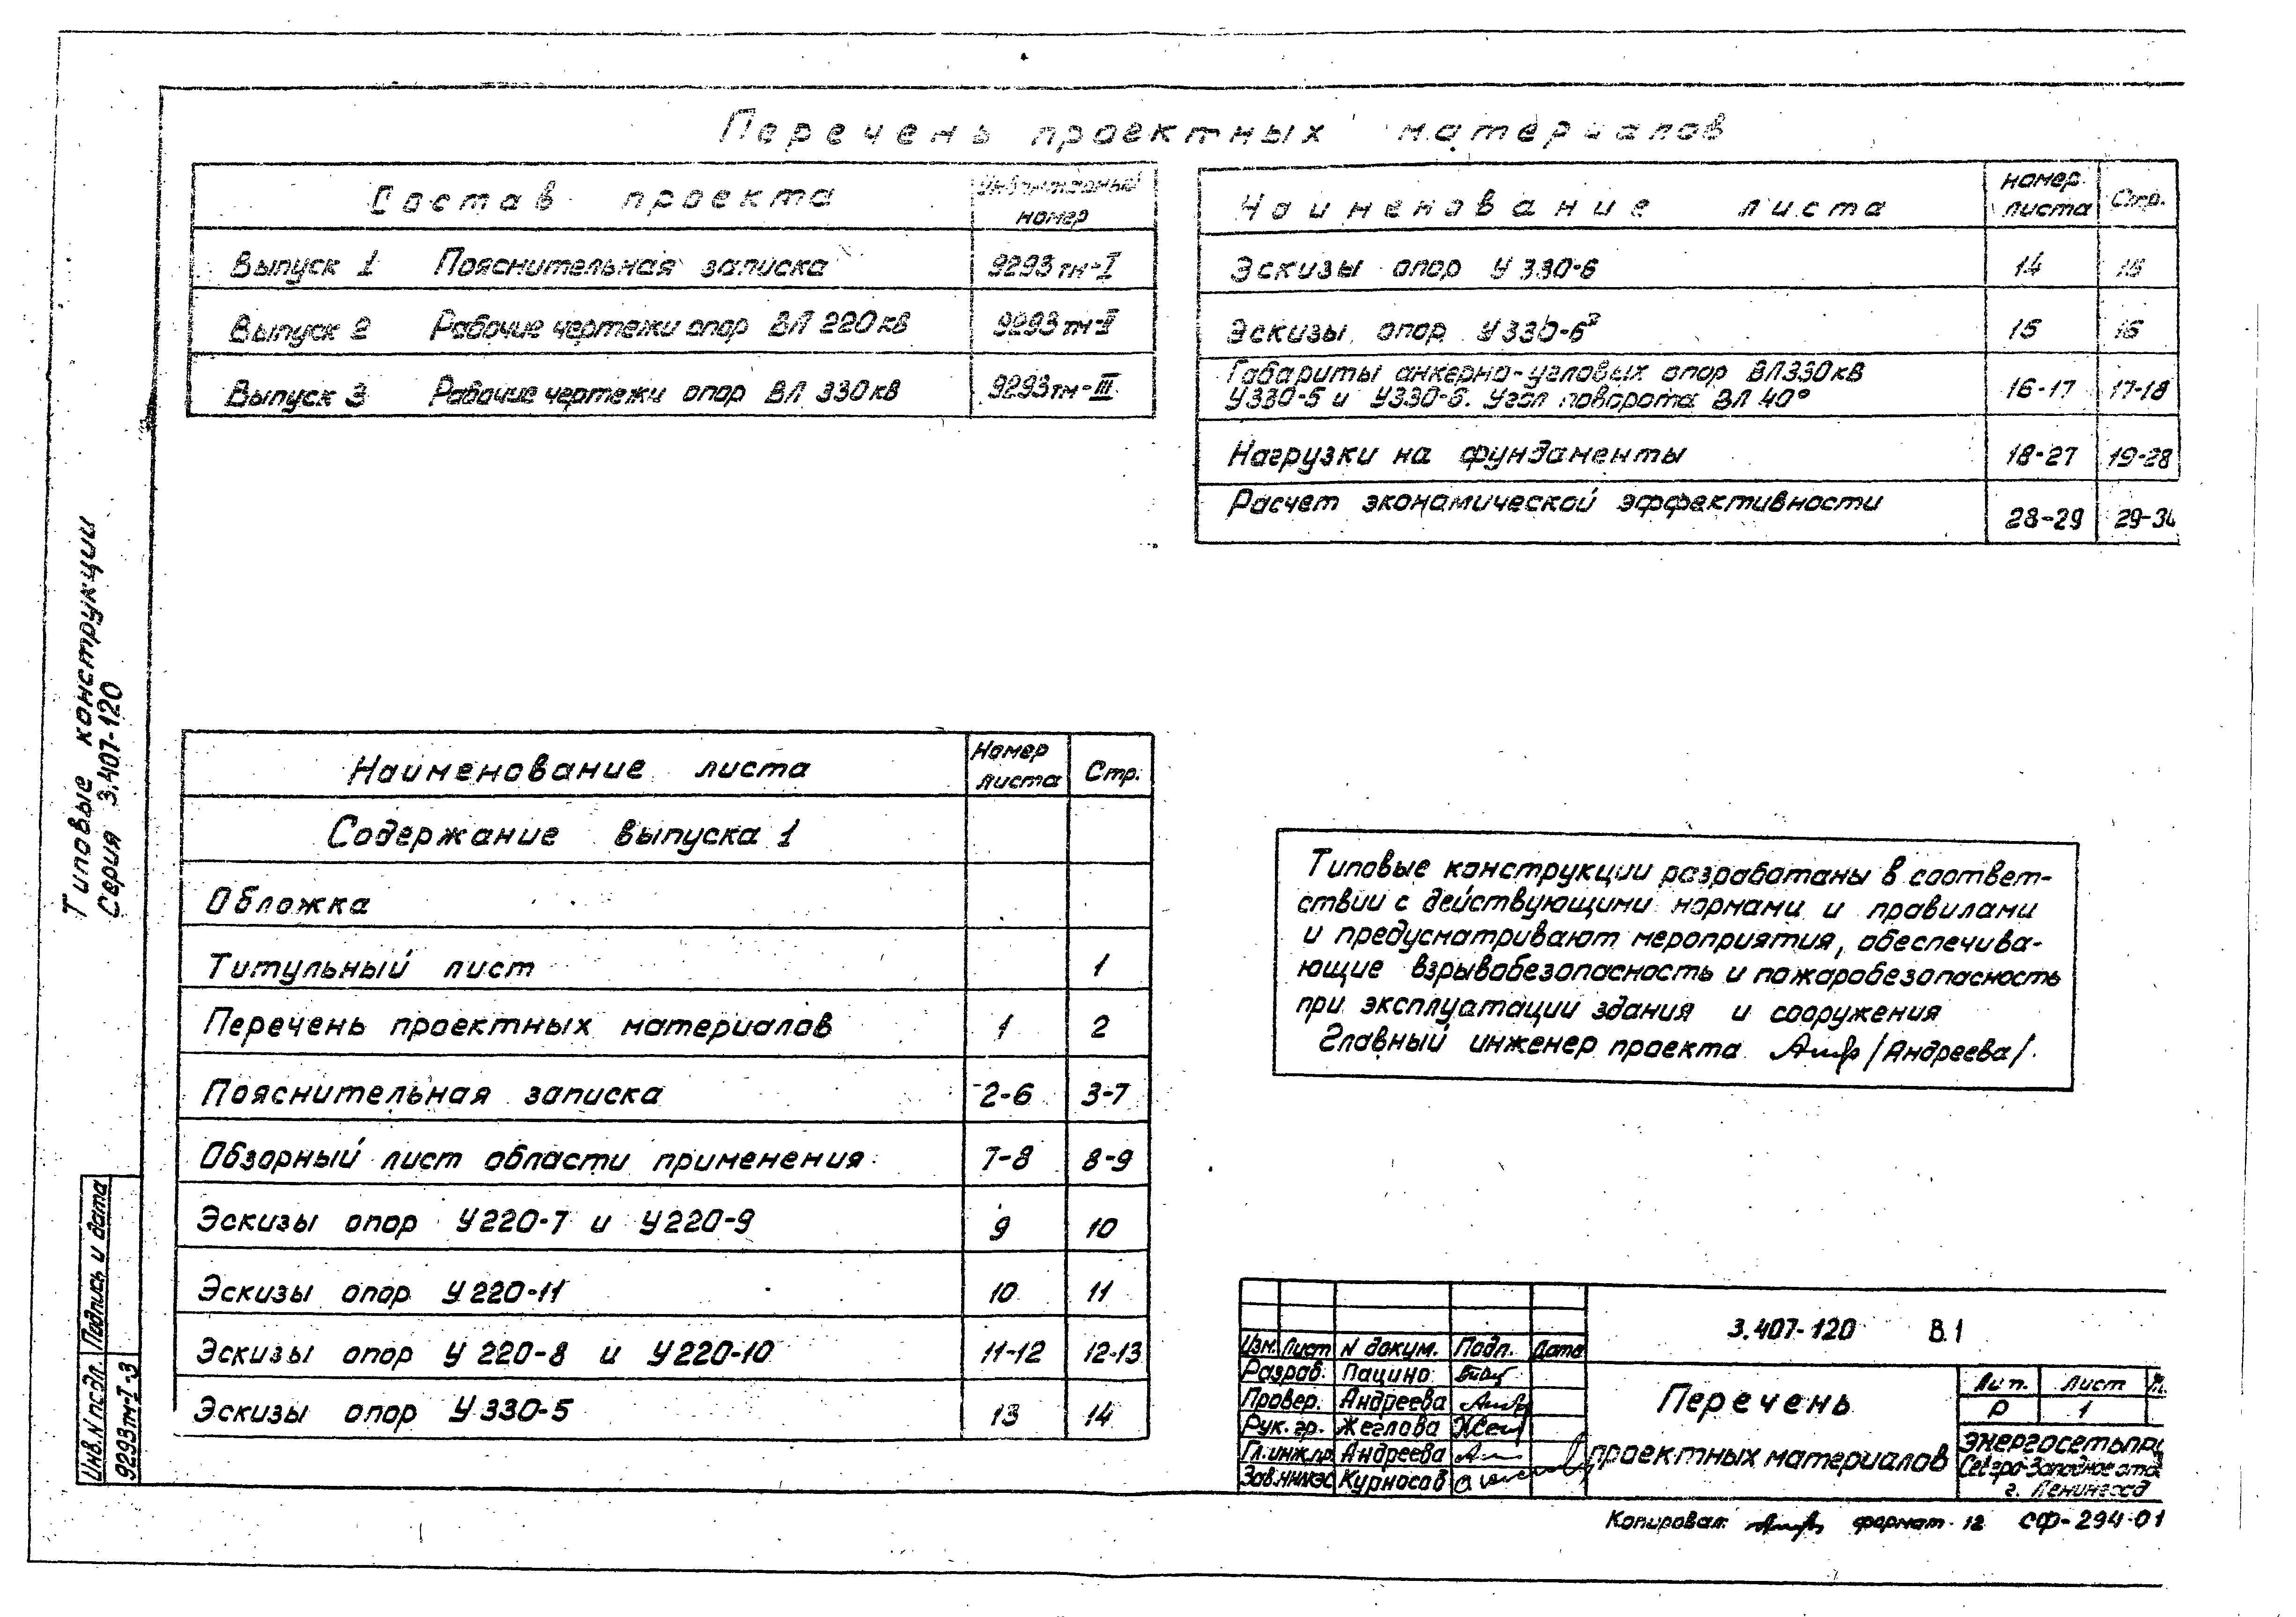 Перечень проектных материалов
Состав проекта
Инвентарный
номер
Выпуск 1 Пояснительная записка 9293тм-I
Выпуск 2 Рабочие чертежи опор ВЛ 220кв 9293тм-II
Выпуск 3 Рабочие чертежи опор ВЛ 330кв 9293тм-III
Наименование листа
номер
листа
Стр.
Эскизы опор У330-6 14 15
Эскизы опор 15 16
Габариты анкерно-угловых опор ВЛ330кв
У330-5 и У330-6. Угол поворота ВЛ 40° 16-17 17-18
Нагрузки на фундаменты 18-27 19-28
Расчет экономической эффективности
28-29 29-34
Типовые конструкции
Серия 3.407-120
Наименование листа
Номер
листа
Стр.
Содержание выпуска 1
Обложка
Титульный лист 1
Перечень проектных материалов 1 2
Пояснительная записка 2-6 3-7
Обзорный лист области применения 7-8 8-9
Эскизы опор У220-7 и У220-9 9 10
Эскизы опор У220-11 10 11
Эскизы опор У220-8 и У220-10 11-12 12-13
Эскизы опор У330-5 13 14
Типовые конструкции разработаны в соответ-
ствии с действующими нормами и правилами
и предусматривают мероприятия, обеспечива-
ющие взрывобезопасность и пожаробезопасность
при эксплуатации здания и сооружения
Главный инженер проекта /Андреева/.
Инв.N подл. Подпись и дата
9293тм-I-3
3.407-120 В.1
Изм. Лист N докум. Подп. Дата
Разраб. Пацино
Провер. Андреева
Рук. гр. Жеглова
Гл.инж.пр. Андреева
Зав.НИЛКЭС Курносов
Перечень
проектных материалов
Лит. Лист
Р 1
Энергосетьпр
Северо-Западное отд
г. Ленинград
Копировал: формат 12 СФ-294-01